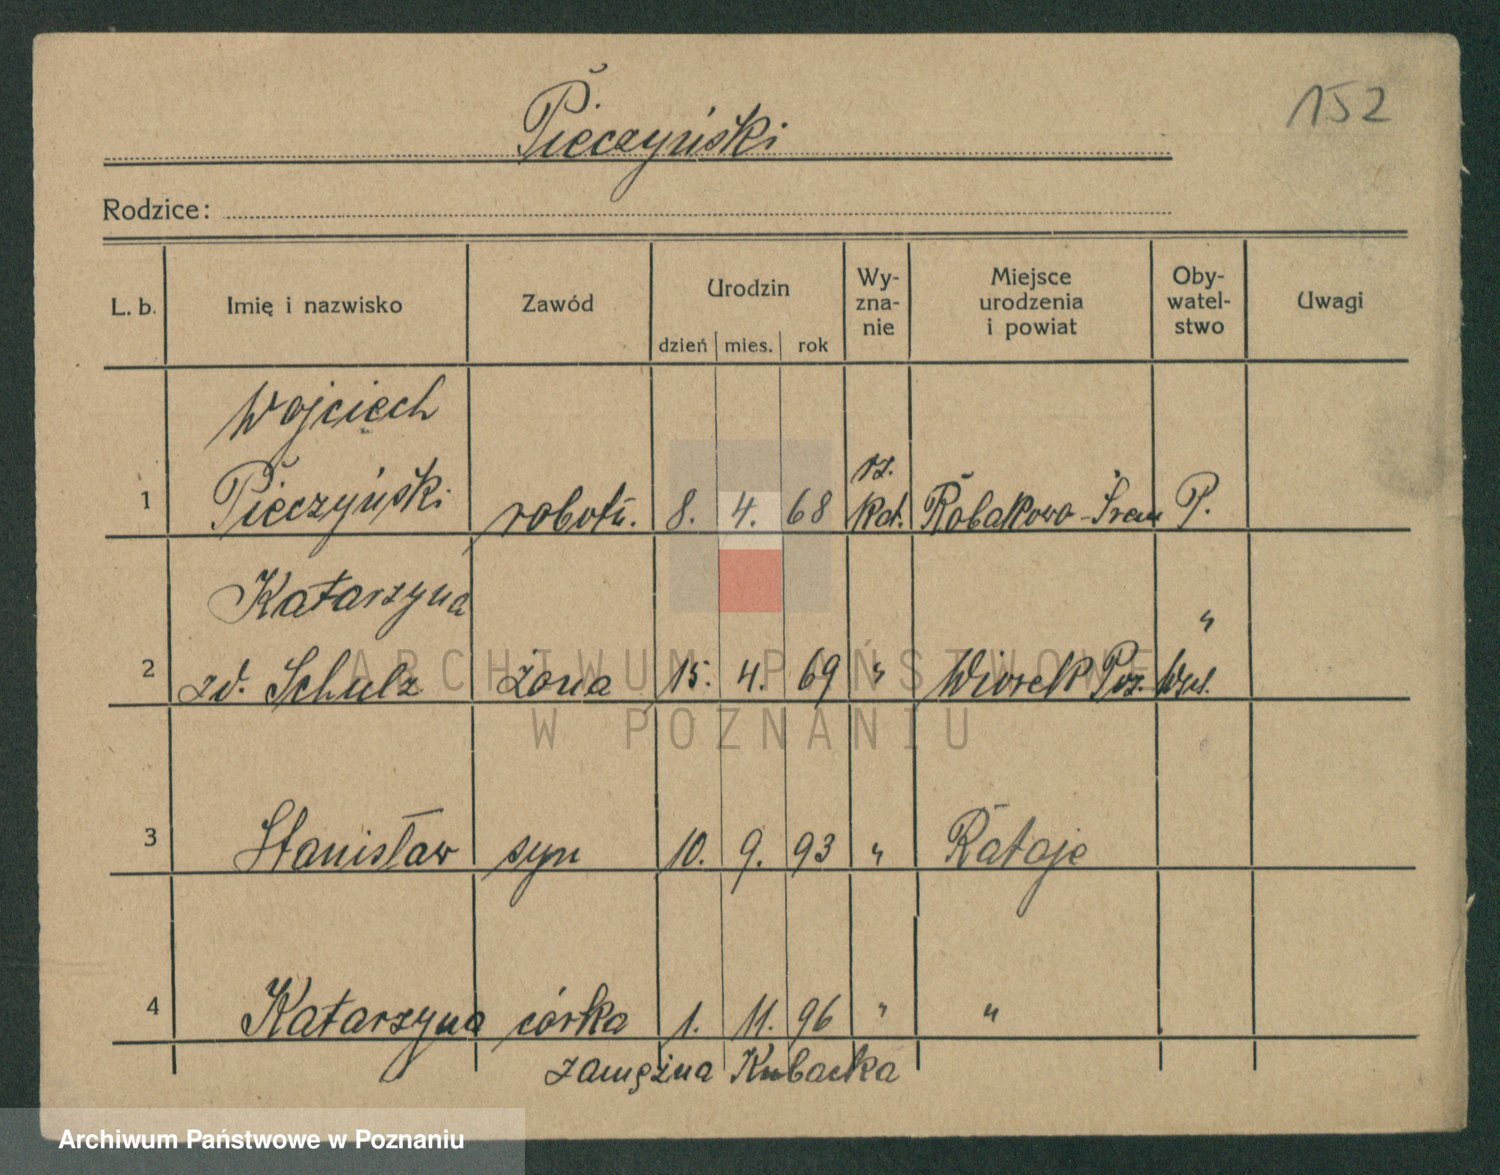 152
Pieczyński
Rodzice:
L. b. Imię i nazwisko Zawód Urodzin dzień mies. rok Wy-zna-nie Miejsce urodzenia i powiat Oby-watel-stwo Uwagi
Wojciech
1 Pieczyński robotn. 8. 4. 68 rz. kat. Robakowo - Śrem P.
Katarzyna "
2 zd. Schulz żona 15. 4. 69 " Wiorek Poz.
3 Stanisław syn 10. 9. 93 " Rataje
4 Katarzyna córka 1. 11. 96 " "
zamężna Kubacka
ARCHIWUM PAŃSTWOWE
W POZNANIU
Archiwum Państwowe w Poznaniu